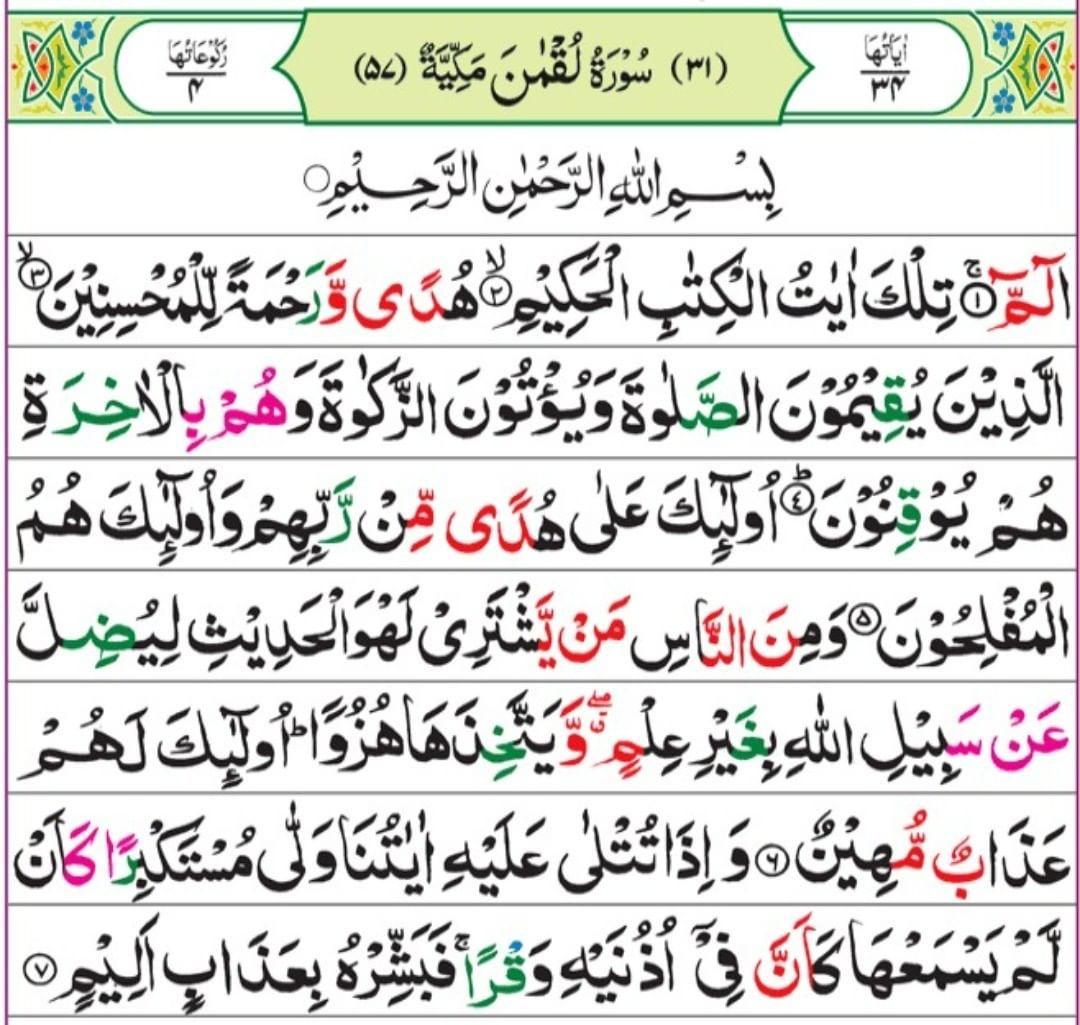 اٰیَاتُهَا ۳۴ (۳۱) سُوْرَةُ لُقْمٰنَ مَكِّیَّةٌ (۵۷) رُكُوْعَاتُهَا ۴
بِسْمِ اللّٰهِ الرَّحْمٰنِ الرَّحِیْمِ○
الٓمّٓ ۚ﴿۱﴾ تِلْكَ اٰیٰتُ الْكِتٰبِ الْحَكِیْمِ ۙ﴿۲﴾ هُدًی وَّرَحْمَةً لِّلْمُحْسِنِیْنَ ۙ﴿۳﴾
الَّذِیْنَ یُقِیْمُوْنَ الصَّلٰوةَ وَیُؤْتُوْنَ الزَّكٰوةَ وَهُمْ بِالْاٰخِرَةِ
هُمْ یُوْقِنُوْنَ ؕ﴿۴﴾ اُولٰٓئِكَ عَلٰی هُدًی مِّنْ رَّبِّهِمْ وَاُولٰٓئِكَ هُمُ
الْمُفْلِحُوْنَ ﴿۵﴾ وَمِنَ النَّاسِ مَنْ یَّشْتَرِیْ لَهْوَ الْحَدِیْثِ لِیُضِلَّ
عَنْ سَبِیْلِ اللّٰهِ بِغَیْرِ عِلْمٍ ۖۗ وَّیَتَّخِذَهَا هُزُوًا ؕ اُولٰٓئِكَ لَهُمْ
عَذَابٌ مُّهِیْنٌ ﴿۶﴾ وَاِذَا تُتْلٰی عَلَیْهِ اٰیٰتُنَا وَلّٰی مُسْتَكْبِرًا كَاَنْ
لَّمْ یَسْمَعْهَا كَاَنَّ فِیْۤ اُذُنَیْهِ وَقْرًا ۚ فَبَشِّرْهُ بِعَذَابٍ اَلِیْمٍ ﴿۷﴾